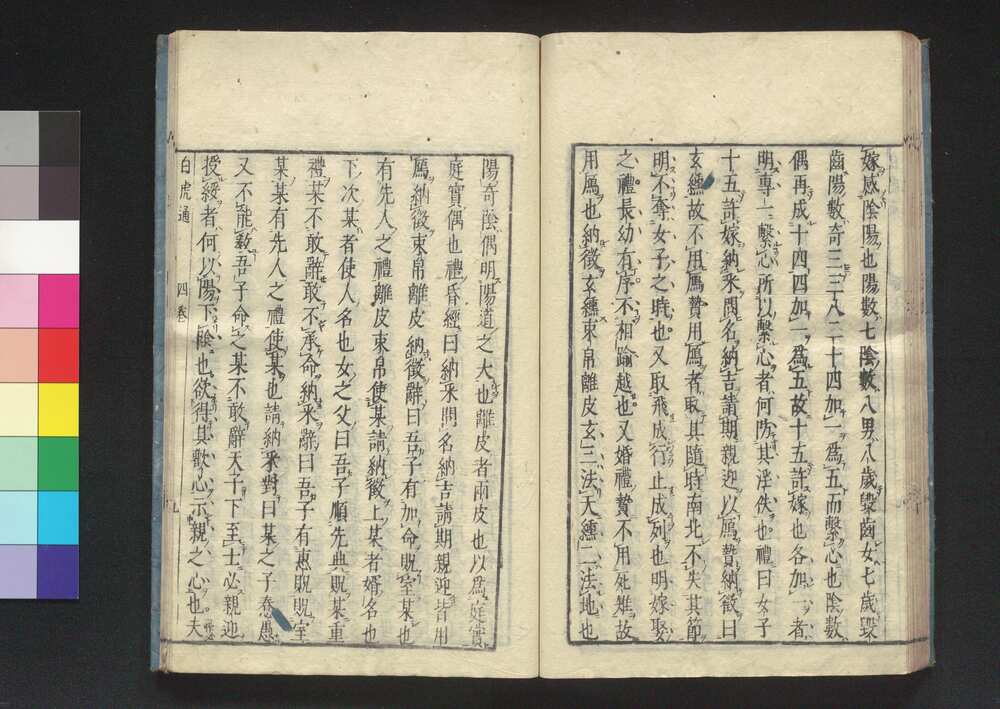 嫁感陰陽也陽數七陰數八男八歲毀齒女七歲毀
齒陽數奇三三八二十四加一爲五而繫心也陰數
偶再成十四四加一爲五故十五許嫁也各加一者
明專一繫心所以繫心者何防其淫佚也禮曰女子
十五許嫁納采問名納吉請期親迎以鴈贄納徵曰
玄纁故不用鴈贄用鴈者取其隨時南北不失其節
明不奪女子之時也又取飛成行止成列也明嫁娶
之禮長幼有序不相踰越也又婚禮贄不用死雉故
用鴈也納徵玄纁束帛離皮玄三法天纁二法地也
陽奇陰偶明陽道之大也離皮者兩皮也以爲庭實
庭實偶也禮昏經曰納采問名納吉請期親迎皆用
鴈納徵束帛離皮納徵辭曰吾子有加命貺室某也
有先人之禮離皮束帛使某請納徵上某者婿名也
下次某者使人名也女之父曰吾子順先典貺某重
禮某不敢辭敢不承命納采辭曰吾子有惠貺貺室
某某有先人之禮使某也請納采對曰某之子惷愚
又不能敎吾子命之某不敢辭天子下至士必親迎
授綏者何以陽下陰也欲得其歡心示親之心也夫
白虎通 四卷 七